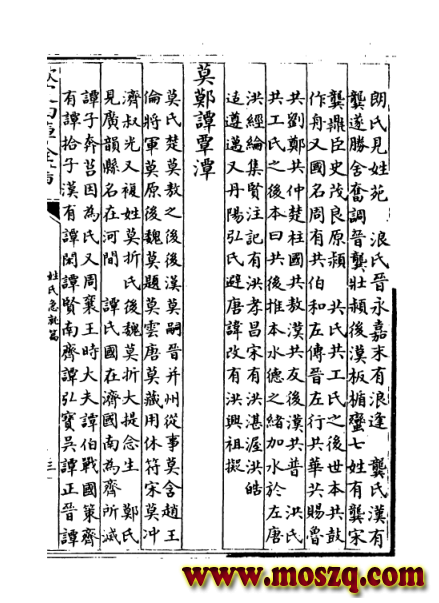 朗氏見姓苑　浪氏晉永嘉末有浪逢　龔氏漢有
龔遂勝舍奮調晉龔壯頴後漢板楯蠻七姓有龔宋
龔鼎臣史茂良原頴　共氏共工氏之後世本共鼓
作舟又國名周有共伯和左傳晉左行共華共賜魯
共劉鄭共仲楚柱國共敖漢共友後漢共普　洪氏
共工氏之後本曰共後推本水德之緒加水於左唐
洪經綸集賢注記有洪孝昌宋有洪湛渥洪皓
适遵邁又丹陽弘氏避唐諱改有洪興祖擬
莫鄭譚覃潭
莫氏楚莫敖之後後漢莫嗣晉并州從事莫含趙王
倫將軍莫原後魏莫題莫雲唐莫藏用休符宋莫沖
濟叔光又複姓莫折氏後魏莫折大提念生　鄭氏
見廣韻縣名在河間　譚氏國在濟國南為齊所滅
譚子奔莒因為氏又周襄王時大夫譚伯戰國策齊
有譚拾子漢有譚閎譚賢南齊譚弘寶吳譚正晉譚
姓氏急就篇
三
www.moszq.com